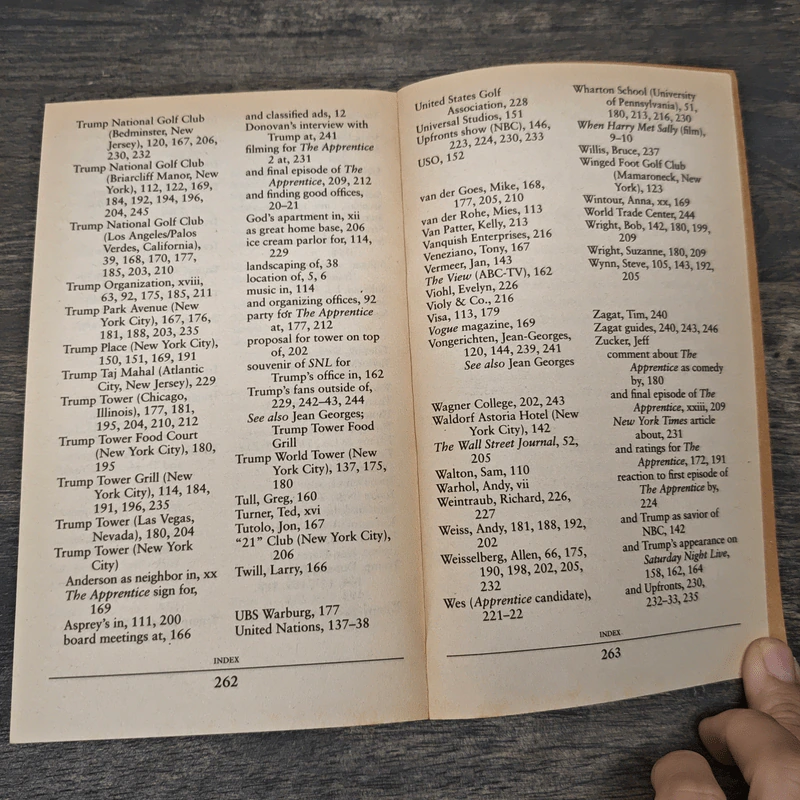 Trump National Golf Club
(Bedminster, New
Jersey), 120, 167, 206,
230, 232
Trump National Golf Club
(Briarcliff Manor, New
York), 112, 122, 169,
184, 192, 194, 196,
204, 245
Trump National Golf Club
(Los Angeles/Palos
Verdes, California),
39, 168, 170, 177,
185, 203, 210
Trump Organization, xviii,
63, 92, 175, 185, 211
Trump Park Avenue (New
York City), 167, 176,
181, 188, 203, 235
Trump Place (New York City),
150, 151, 169, 191
Trump Taj Mahal (Atlantic
City, New Jersey), 229
Trump Tower (Chicago,
Illinois), 177, 181,
195, 204, 210, 212
Trump Tower Food Court
(New York City), 180,
195
Trump Tower Grill (New
York City), 114, 184,
191, 196, 235
Trump Tower (Las Vegas,
Nevada), 180, 204
Trump Tower (New York
City)
Anderson as neighbor in, xx
The Apprentice sign for,
169
Asprey's in, 111, 200
board meetings at, 166
and classified ads, 12
Donovan's interview with
Trump at, 241
filming for The Apprentice
2 at, 231
and final episode of The
Apprentice, 209, 212
and finding good offices,
20–21
God's apartment in, xii
as great home base, 206
ice cream parlor for, 114,
229
landscaping of, 38
location of, 5, 6
music in, 114
and organizing offices, 92
party for The Apprentice
at, 177, 212
proposal for tower on top
of, 202
souvenir of SNL for
Trump's office in, 162
Trump's fans outside of,
229, 242–43, 244
See also Jean Georges;
Trump Tower Food
Grill
Trump World Tower (New
York City), 137, 175,
180
Tull, Greg, 160
Turner, Ted, xvi
Tutolo, Jon, 167
"21" Club (New York City),
206
Twill, Larry, 166
UBS Warburg, 177
United Nations, 137–38
INDEX
262
United States Golf
Association, 228
Universal Studios, 151
Upfronts show (NBC), 146,
223, 224, 230, 233
USO, 152
van der Goes, Mike, 168,
177, 205, 210
van der Rohe, Mies, 113
Van Patter, Kelly, 213
Vanquish Enterprises, 216
Veneziano, Tony, 167
Vermeer, Jan, 143
The View (ABC-TV), 162
Viohl, Evelyn, 226
Violy & Co., 216
Visa, 113, 179
Vogue magazine, 169
Vongerichten, Jean-Georges,
120, 144, 239, 241
See also Jean Georges
Wagner College, 202, 243
Waldorf Astoria Hotel (New
York City), 142
The Wall Street Journal, 52,
205
Walton, Sam, 110
Warhol, Andy, vii
Weintraub, Richard, 226,
227
Weiss, Andy, 181, 188, 192,
202
Weisselberg, Allen, 66, 175,
190, 198, 202, 205,
232
Wes (Apprentice candidate),
221–22
Wharton School (University
of Pennsylvania), 51,
180, 213, 216, 230
When Harry Met Sally (film),
9–10
Willis, Bruce, 237
Winged Foot Golf Club
(Mamaroneck, New
York), 123
Wintour, Anna, xx, 169
World Trade Center, 244
Wright, Bob, 142, 180, 199,
209
Wright, Suzanne, 180, 209
Wynn, Steve, 105, 143, 192,
205
Zagat, Tim, 240
Zagat guides, 240, 243, 246
Zucker, Jeff
comment about The
Apprentice as comedy
by, 180
and final episode of The
Apprentice, xxiii, 209
New York Times article
about, 231
and ratings for The
Apprentice, 172, 191
reaction to first episode of
The Apprentice by,
224
and Trump as savior of
NBC, 142
and Trump's appearance on
Saturday Night Live,
158, 162, 164
and Upfronts, 230,
232–33, 235
INDEX
263